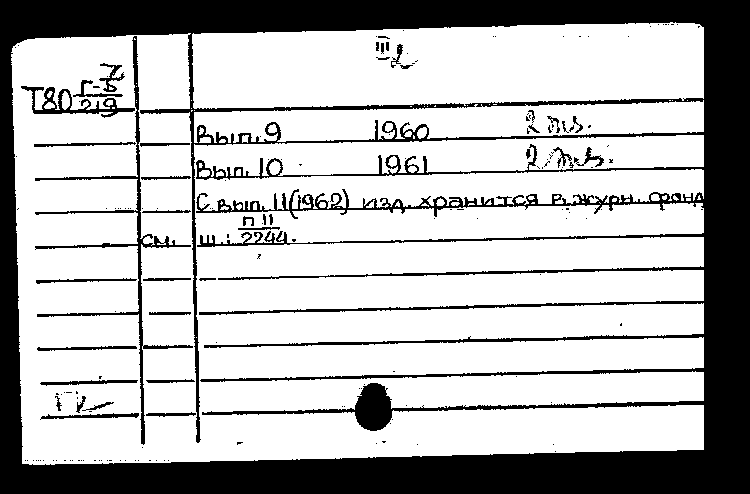 III 2
7
Т80 Г-5
219
Вып. 9 1960 2 экз.
Вып. 10 1961 2 экз.
С вып. 11(1962) изд. хранится в журн. фонд
см. ш.: П 11
2244.